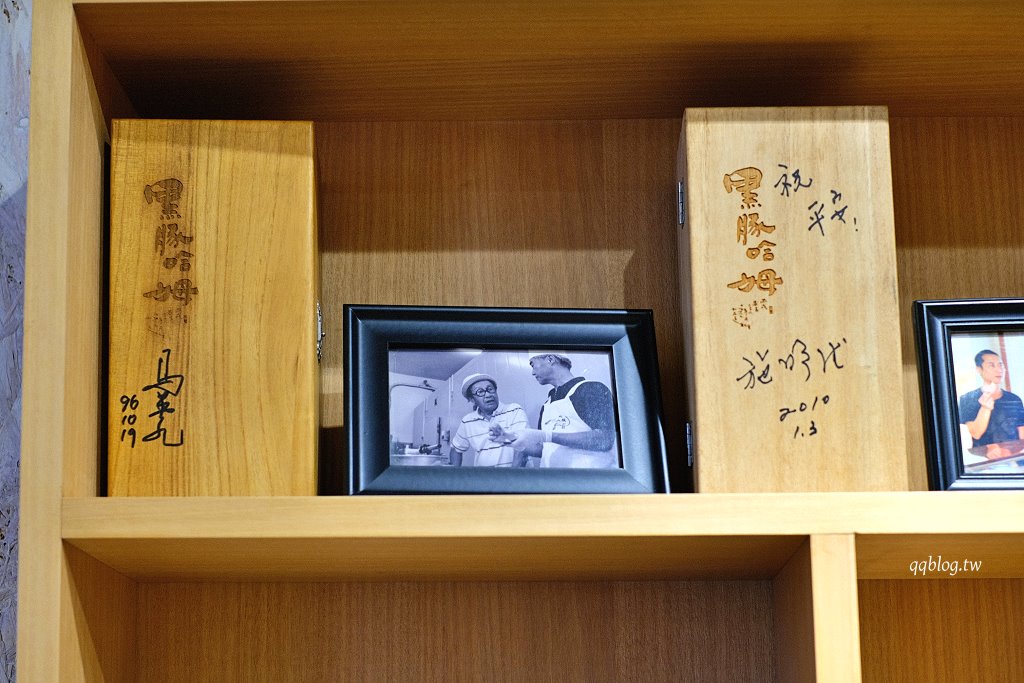 黑豚哈姆
馬英九
96
10
19
黑豚哈姆
祝
平安!
施明德
2010
1.3
qqblog.tw